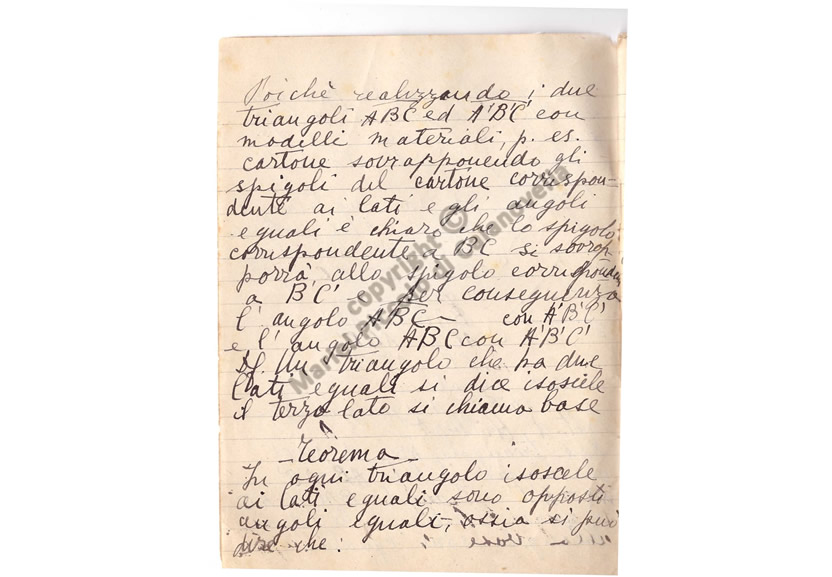 Poichè realizzando i due
triangoli ABC ed A'B'C' con
modelli materiali, p. es.
cartone sovrapponendo gli
spigoli del cartone corrispon-
denti ai lati e gli angoli
eguali è chiaro che lo spigolo
corrispondente a BC si sovrap
porrà allo spigolo corrispondente
a B'C' per conseguenza
l'angolo ABC con A'B'C'
e l'angolo ABC con A'B'C'
Un triangolo che ha due
lati eguali si dice isoscele
il terzo lato si chiama base
Teorema
In ogni triangolo isoscele
ai lati eguali sono opposti
angoli eguali, ossia si può
dire che:
copyright ©